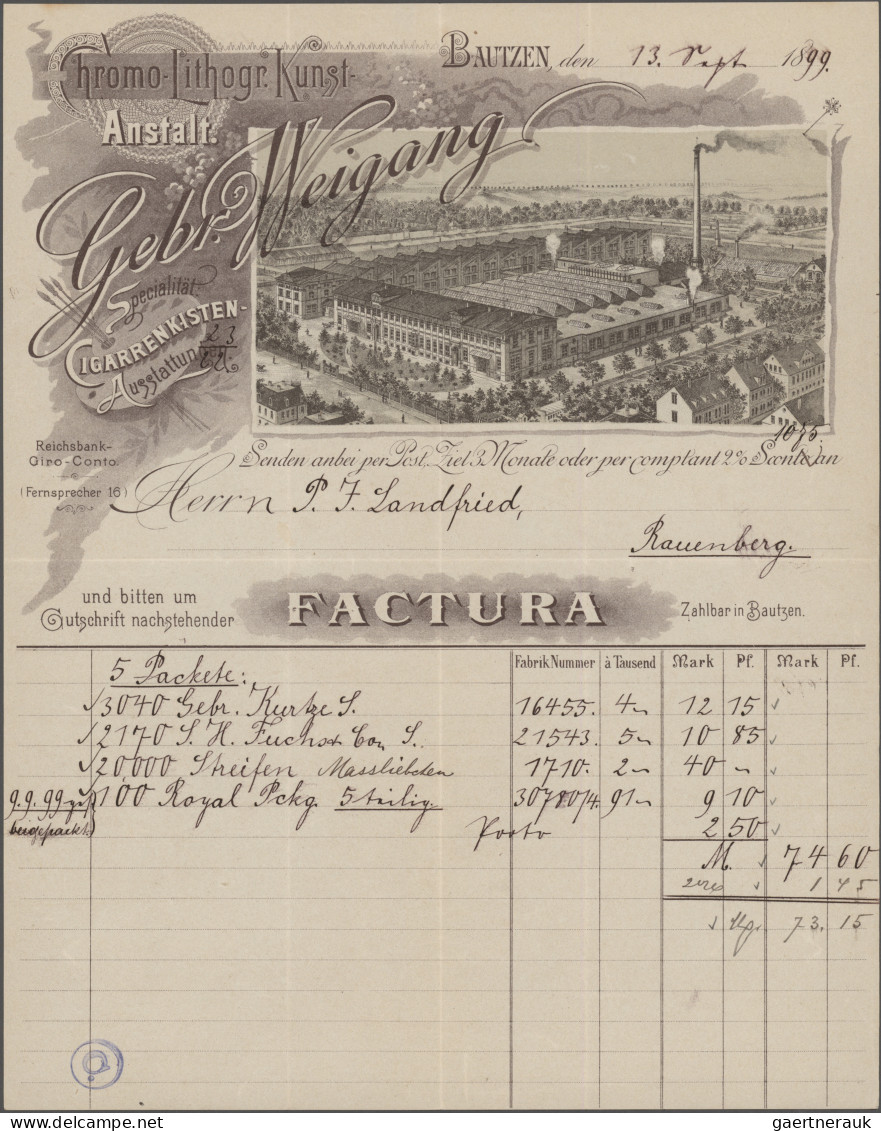 Chromo-Lithogr. Kunst-
Anstalt.
BAUTZEN, den 13. Sept 1899.
Gebr. Weigang
Specialität:
CIGARRENKISTEN-
Ausstattung
23
Reichsbank-
Giro-Conto.
(Fernsprecher 16)
1075
Senden anbei per Post, Ziel 3 Monate oder per comptant 2% Sconto an
Herrn P. J. Landfried,
Rauenberg.
und bitten um
Gutschrift nachstehender
FACTURA
Zahlbar in Bautzen.
Fabrik Nummer à Tausend Mark Pf. Mark Pf.
5 Packete:
3040 Gebr. Kurtze S. 16455. 4 12 15
2170 S. H. Fuchs Co S. 21543. 5 10 85
20,000 Streifen Massliebchen 1710. 2 40 –
9.9.99 100 Royal Pckg. 5 teilig. 30780/4. 91 9 10
beigepackt.) Porto 2 50
M. 74 60
1 45
73. 15
gaertnerauk